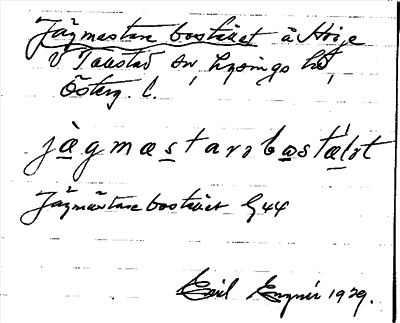 Jägmästare bostället å Höje
V Tollstad sn, Lysings hd,
Österg. l.
jägmæstarobastælət
Jägmästarebostället G 44
Emil 1929.